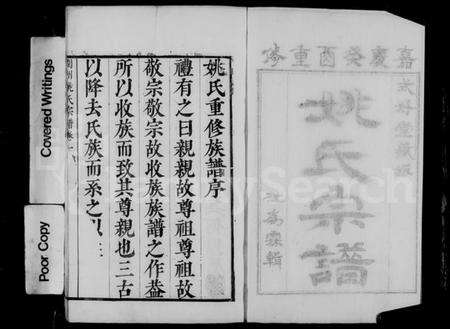 嘉慶癸酉重修
式好堂藏版
姚氏宗譜
姚氏重修族譜序
禮有之曰親親故尊祖尊祖故
敬宗敬宗故收族族譜之作葢
所以收族而致其尊親也三古
以降去氏族而系之以
姚氏宗譜卷一
Covered Writings
Poor Copy